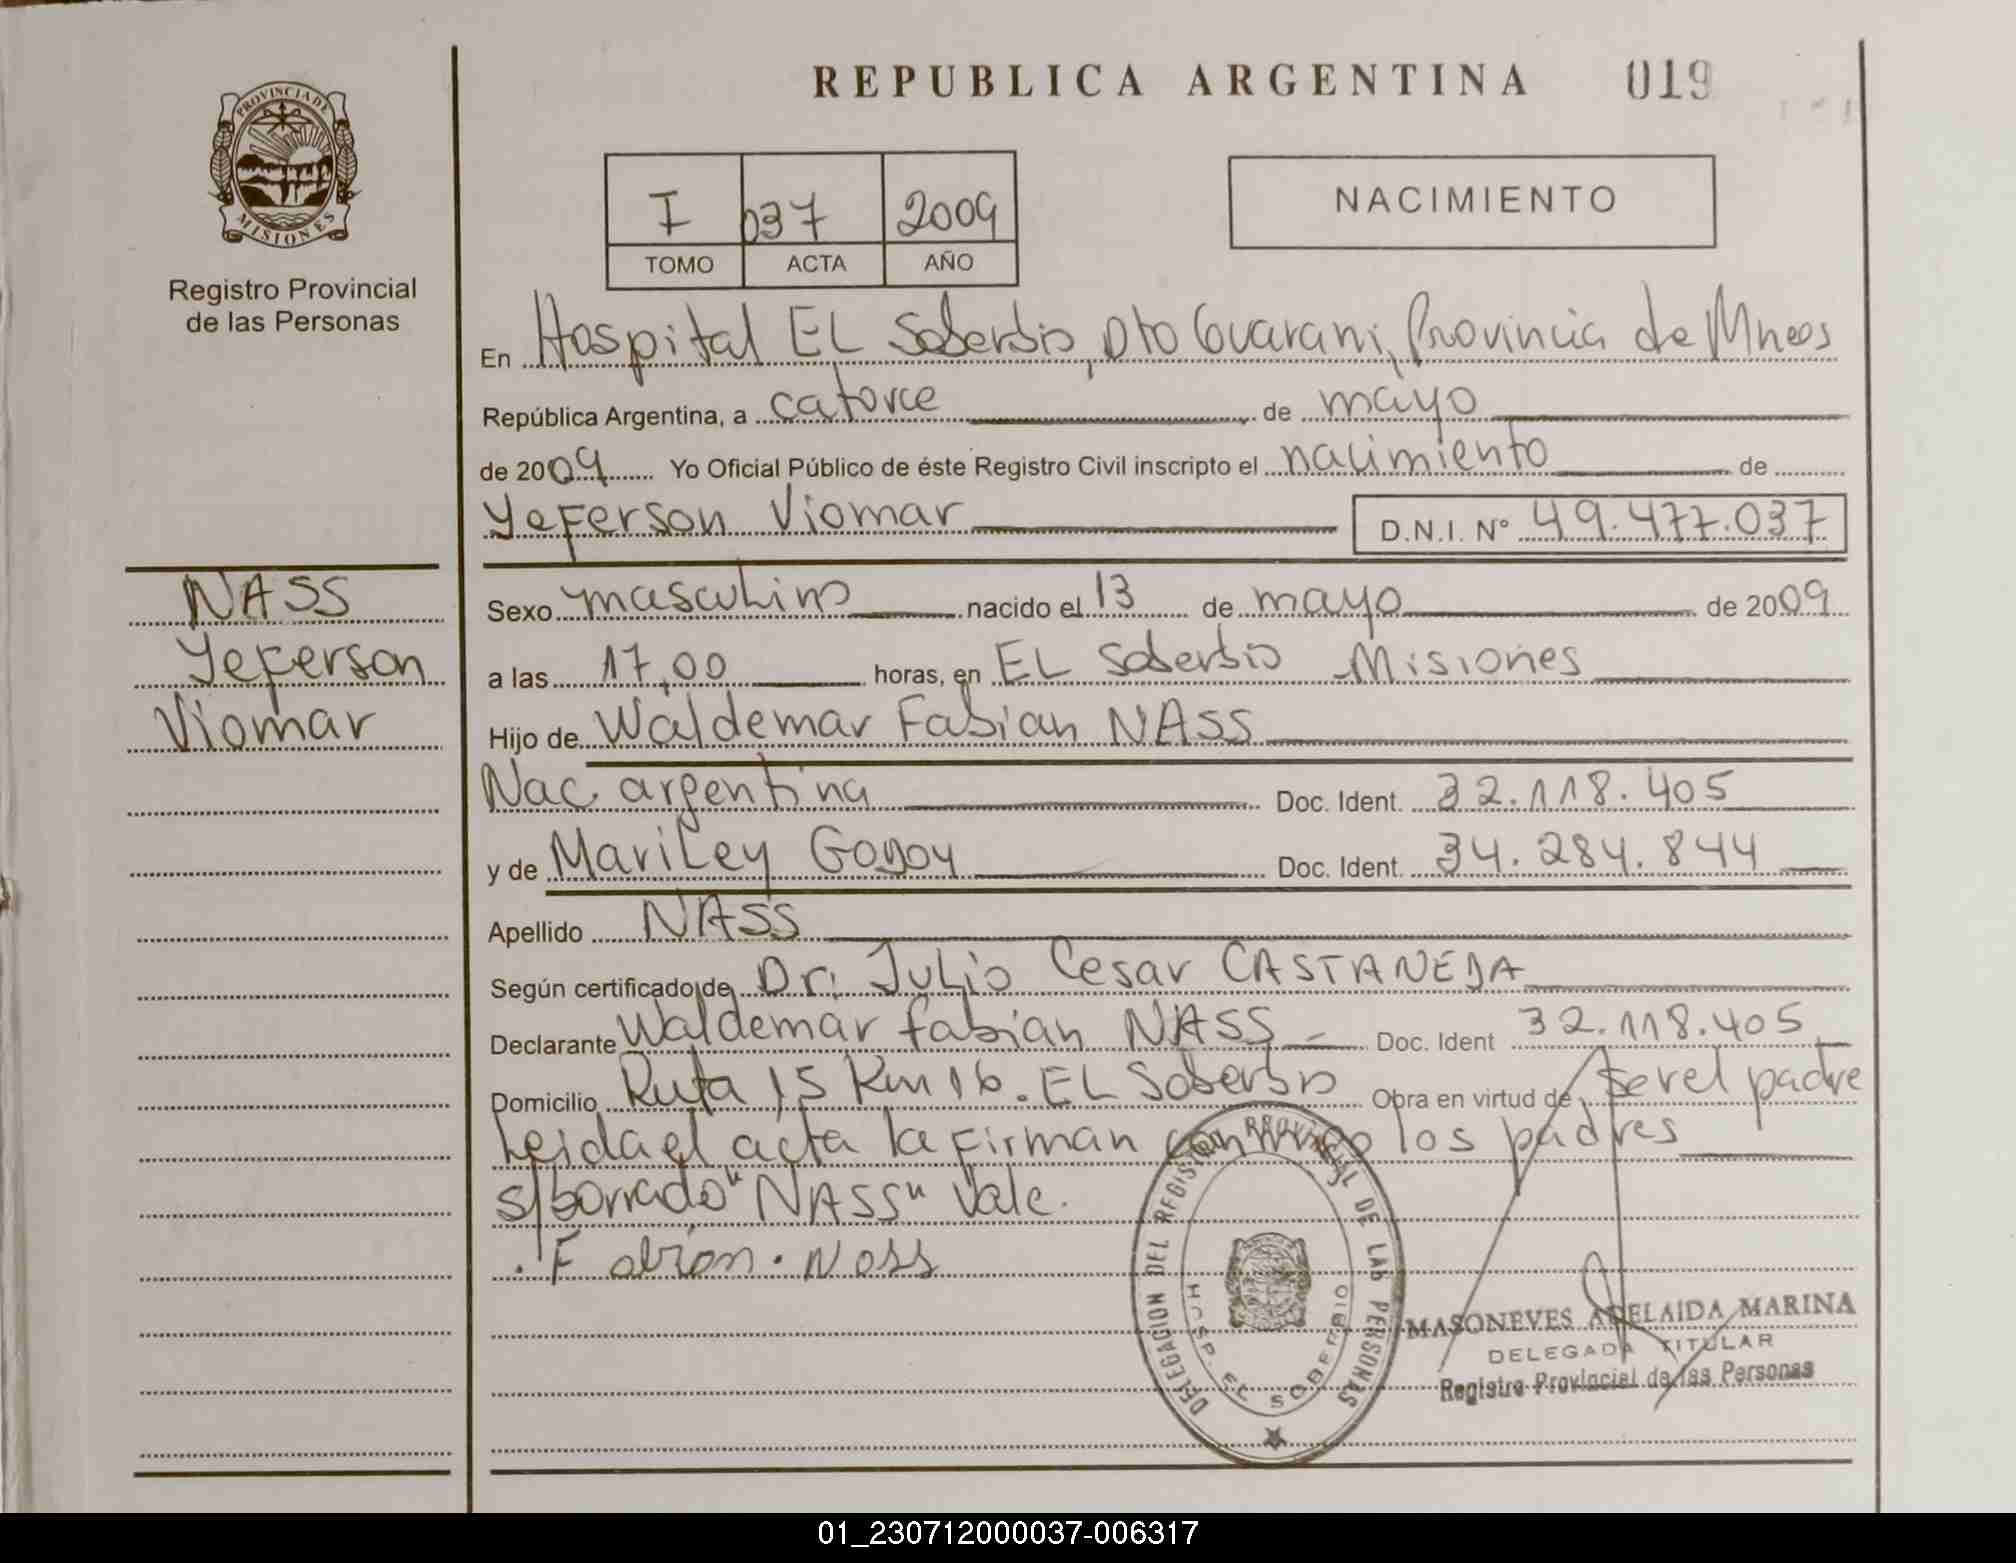 REPUBLICA ARGENTINA 019
PROVINCIA DE
MISIONES
Registro Provincial
de las Personas
I 037 2009
TOMO ACTA AÑO
NACIMIENTO
En Hospital EL Soberbio, Dto Guarani, Provincia de Mnes
República Argentina, a catorce de mayo
de 2009 Yo Oficial Público de éste Registro Civil inscripto el nacimiento de
Yeferson Viomar D.N.I. N° 49.477.037
NASS
Yeferson
Viomar
Sexo masculino nacido el 13 de mayo de 2009
a las 17,00 horas, en EL Soberbio Misiones
Hijo de Waldemar Fabian NASS
Nac. argentina Doc. Ident. 32.118.405
y de Mariley Godoy Doc. Ident. 34.284.844
Apellido NASS
Según certificado de Dr. Julio Cesar CASTANEDA
Declarante Waldemar fabian NASS Doc. Ident 32.118.405
Domicilio Ruta 15 Km 16. EL Soberbio Obra en virtud de ser el padre
Leida el acta la firman conmigo los padres
s/borrado "NASS" vale.
Fabian. Nass
DELEGACION DEL REGISTRO PROVINCIAL DE LAS PERSONAS
HOSP. EL SOBERBIO
MASONEVES ADELAIDA MARINA
DELEGADA TITULAR
Registro Provincial de las Personas
01_230712000037-006317